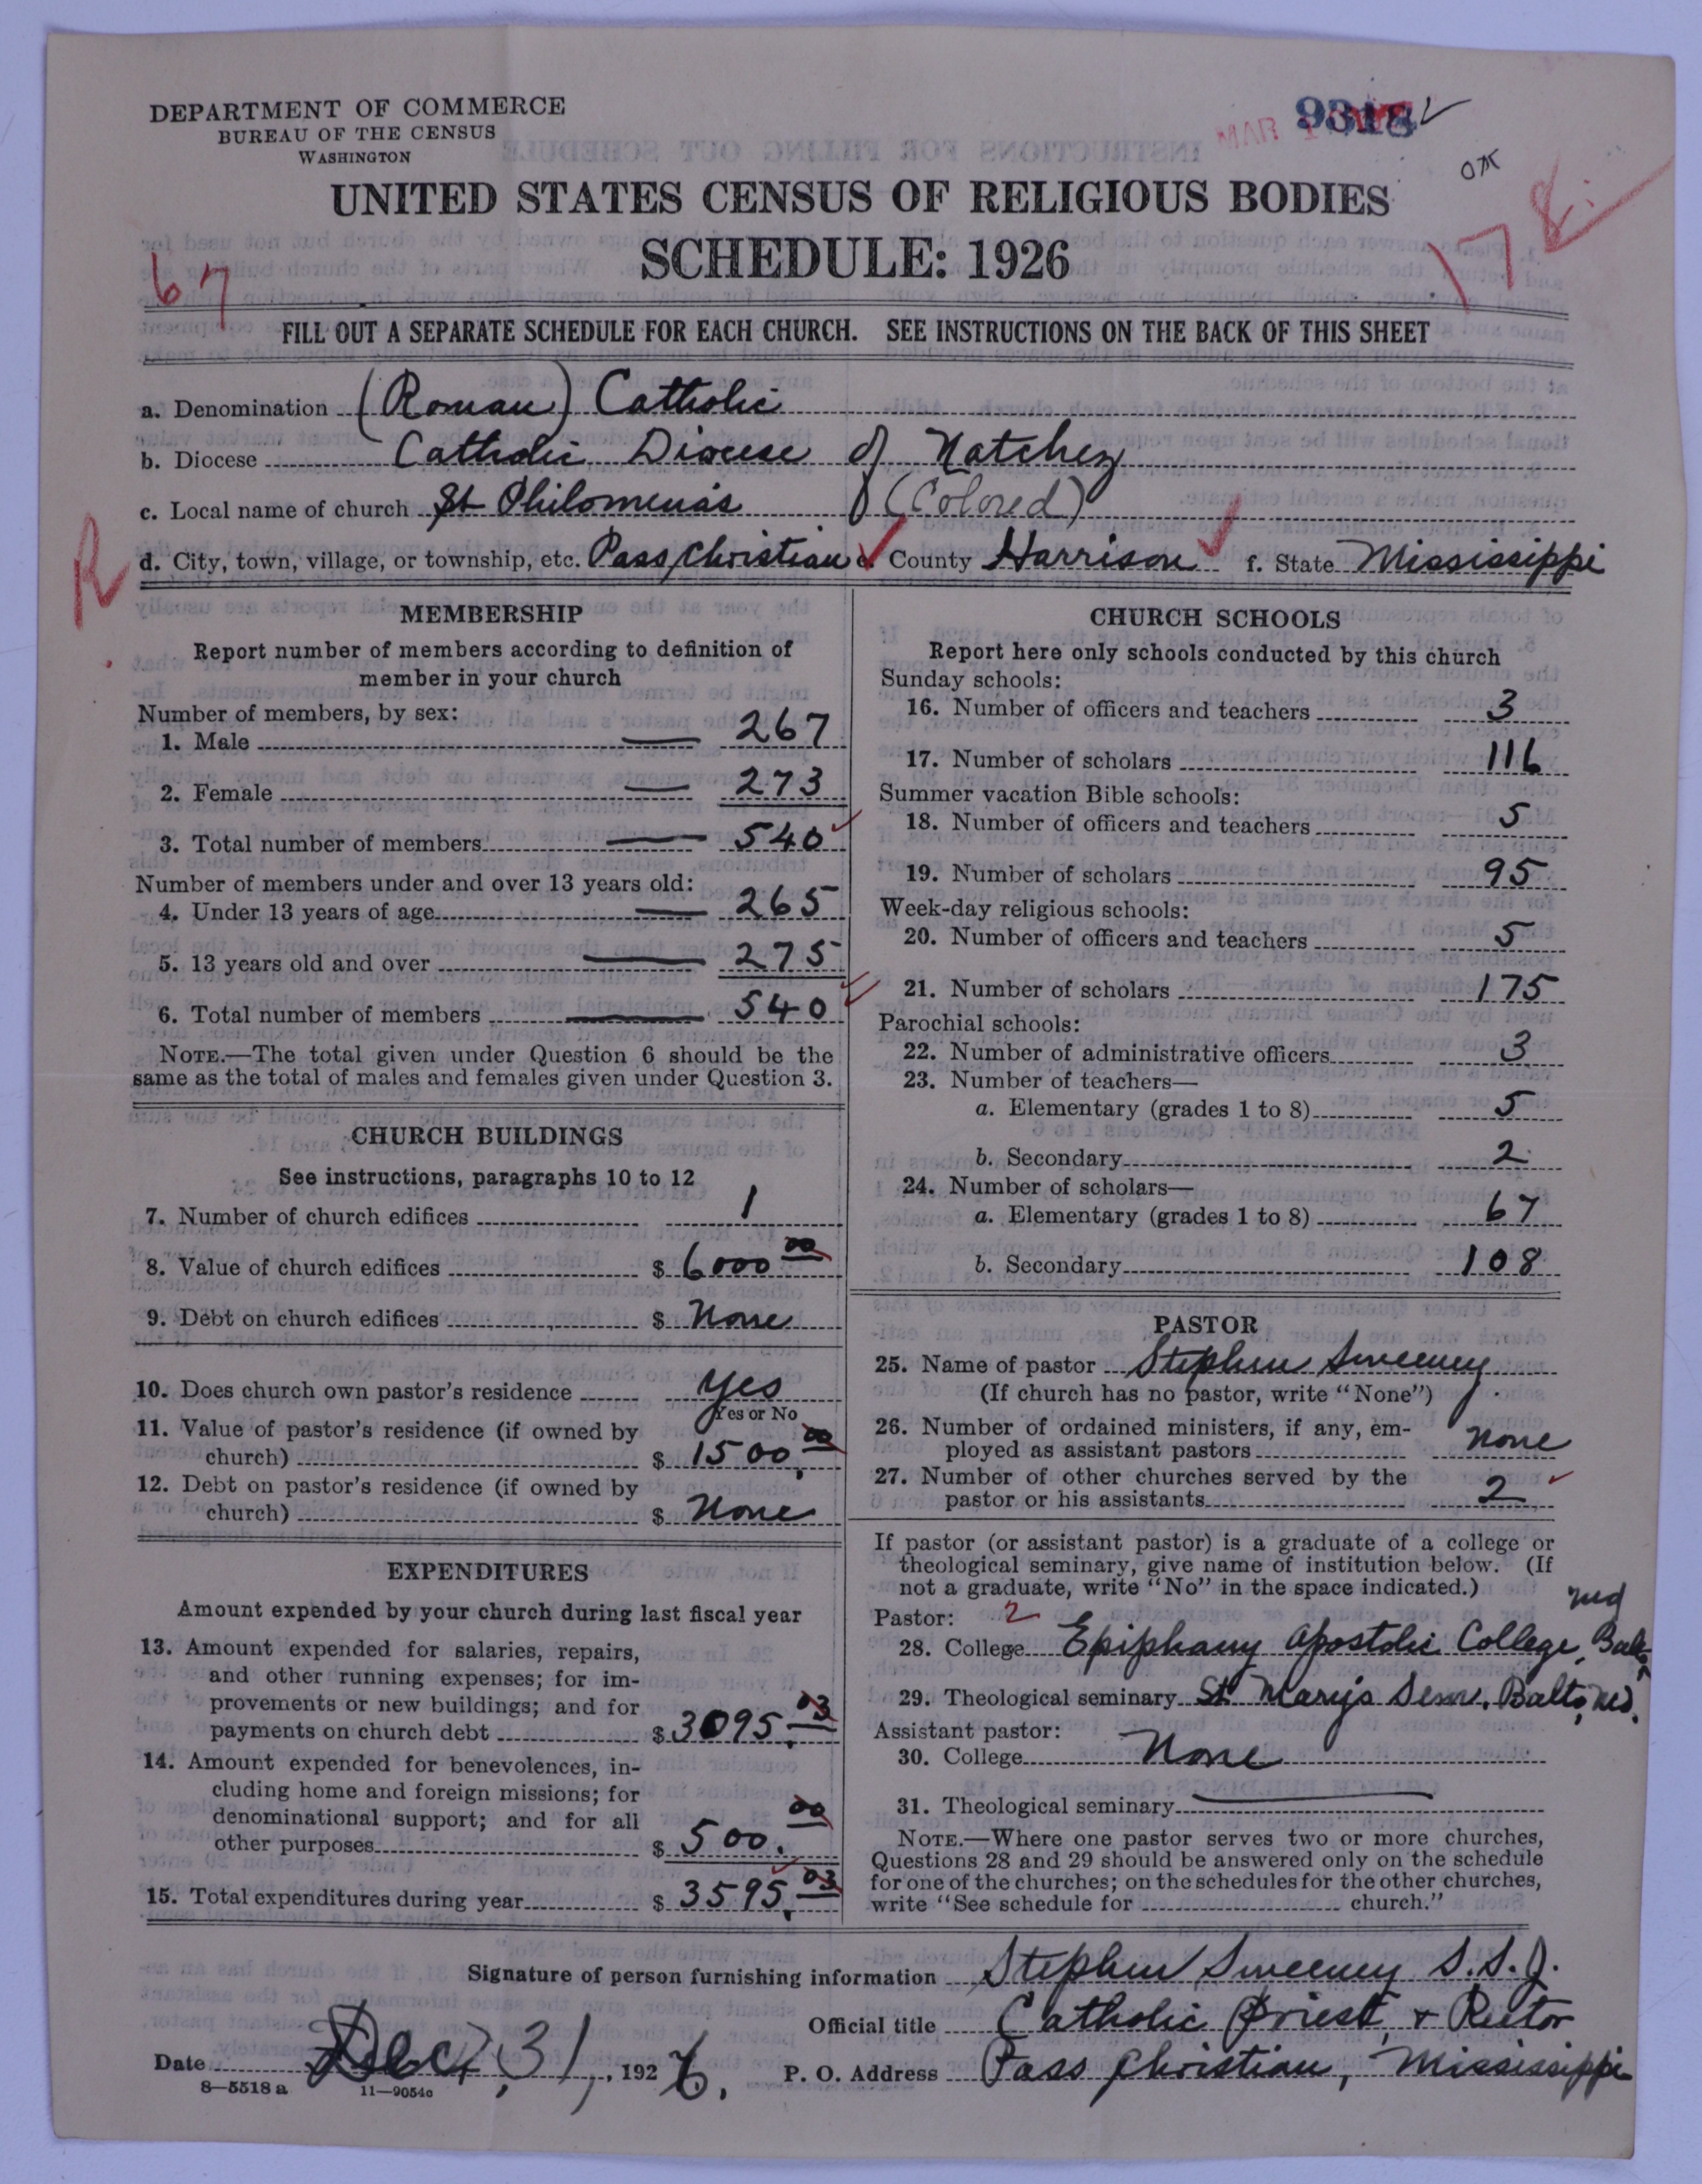 DEPARTMENT OF COMMERCE
BUREAU OF THE CENSUS
WASHINGTON
9318
MAR
OK
UNITED STATES CENSUS OF RELIGIOUS BODIES
SCHEDULE: 1926
67
178
FILL OUT A SEPARATE SCHEDULE FOR EACH CHURCH. SEE INSTRUCTIONS ON THE BACK OF THIS SHEET
a. Denomination (Roman) Catholic
b. Diocese Catholic Diocese of Natchez
c. Local name of church St Philomena's (Colored)
R
d. City, town, village, or township, etc. Pass Christian e. County Harrison f. State Mississippi
MEMBERSHIP
Report number of members according to definition of
member in your church
Number of members, by sex:
1. Male — 267
2. Female — 273
3. Total number of members — 540
Number of members under and over 13 years old:
4. Under 13 years of age — 265
5. 13 years old and over — 275
6. Total number of members — 540
NOTE.—The total given under Question 6 should be the
same as the total of males and females given under Question 3.
CHURCH BUILDINGS
See instructions, paragraphs 10 to 12
7. Number of church edifices 1
8. Value of church edifices $ 6000 00
9. Debt on church edifices $ None
10. Does church own pastor's residence Yes
Yes or No
11. Value of pastor's residence (if owned by
church) $ 1500.00
12. Debt on pastor's residence (if owned by
church) $ None
EXPENDITURES
Amount expended by your church during last fiscal year
13. Amount expended for salaries, repairs,
and other running expenses; for im-
provements or new buildings; and for
payments on church debt $ 3095.03
14. Amount expended for benevolences, in-
cluding home and foreign missions; for
denominational support; and for all
other purposes $ 500.00
15. Total expenditures during year $ 3595.03
CHURCH SCHOOLS
Report here only schools conducted by this church
Sunday schools:
16. Number of officers and teachers 3
17. Number of scholars 116
Summer vacation Bible schools:
18. Number of officers and teachers 5
19. Number of scholars 95
Week-day religious schools:
20. Number of officers and teachers 5
21. Number of scholars 175
Parochial schools:
22. Number of administrative officers 3
23. Number of teachers—
a. Elementary (grades 1 to 8) 5
b. Secondary 2
24. Number of scholars—
a. Elementary (grades 1 to 8) 67
b. Secondary 108
PASTOR
25. Name of pastor Stephen Sweeney
(If church has no pastor, write "None")
26. Number of ordained ministers, if any, em-
ployed as assistant pastors none
27. Number of other churches served by the
pastor or his assistants 2
If pastor (or assistant pastor) is a graduate of a college or
theological seminary, give name of institution below. (If
not a graduate, write "No" in the space indicated.)
Pastor: 2 Md
28. College Epiphany Apostolic College, Balto,
29. Theological seminary St Mary's Sem. Balto, Md.
Assistant pastor:
30. College None
31. Theological seminary
NOTE.—Where one pastor serves two or more churches,
Questions 28 and 29 should be answered only on the schedule
for one of the churches; on the schedules for the other churches,
write "See schedule for church."
Signature of person furnishing information Stephen Sweeney S.S.J.
Official title Catholic Priest & Rector
Date Dec. 31, 1926. P. O. Address Pass Christian, Mississippi
8—5518 a 11—9054c